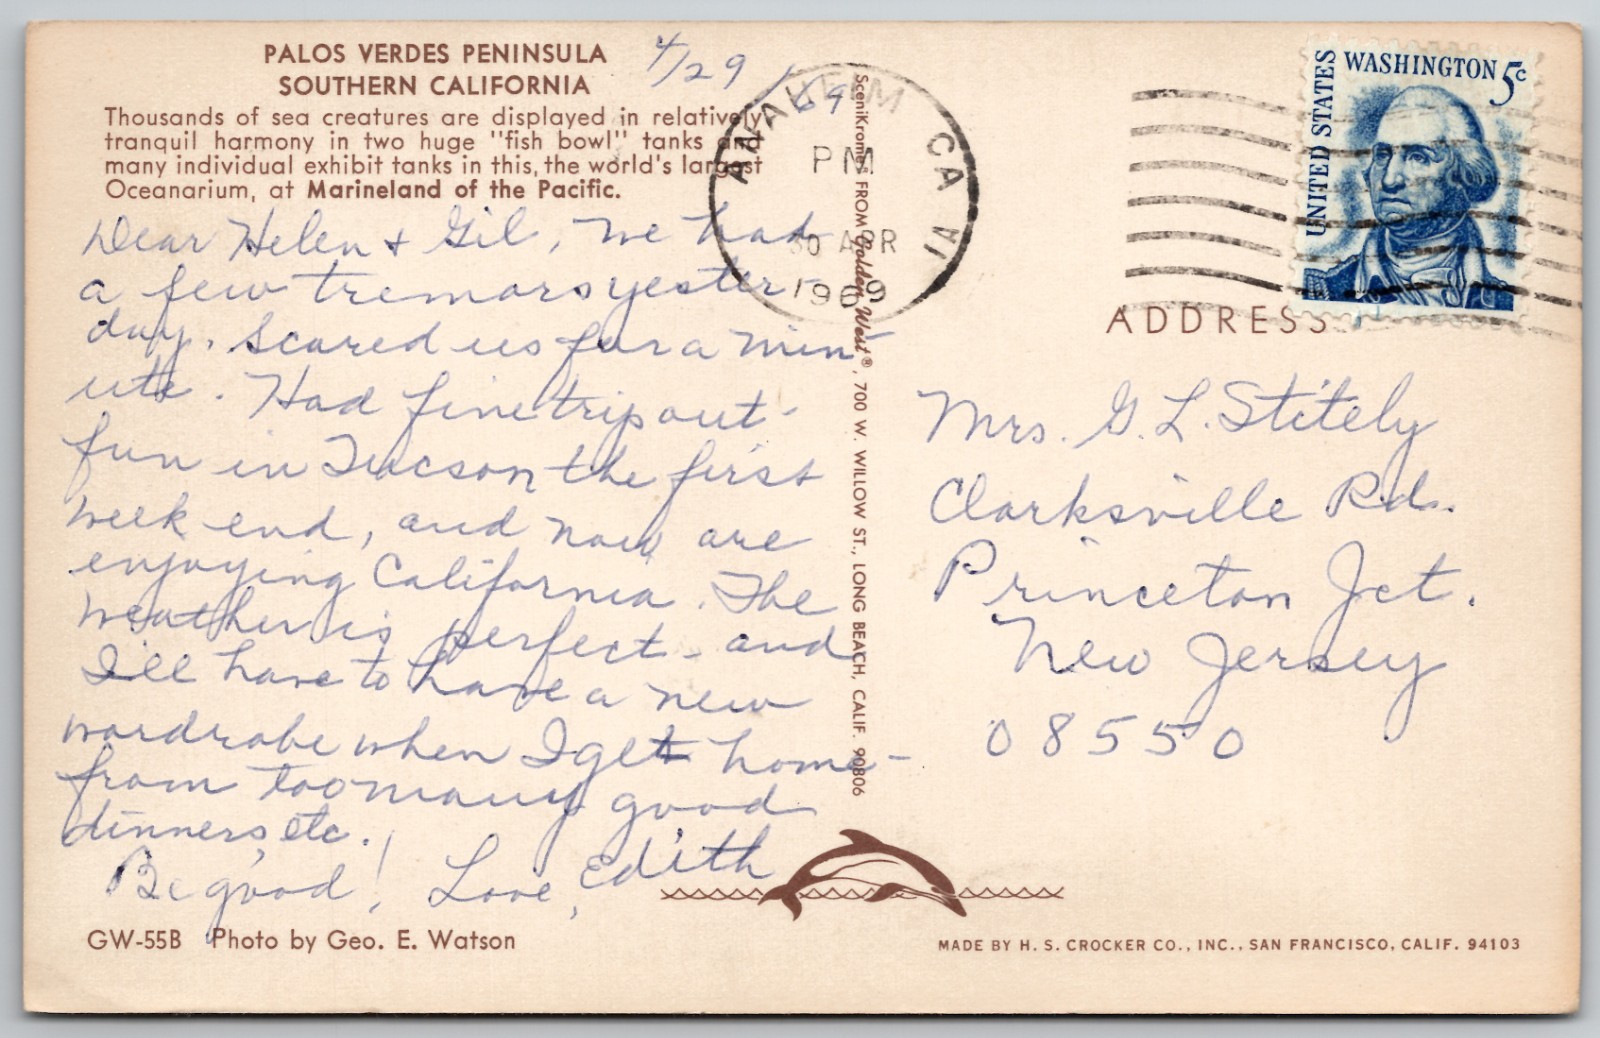 PALOS VERDES PENINSULA
SOUTHERN CALIFORNIA
Thousands of sea creatures are displayed in relatively
tranquil harmony in two huge "fish bowl" tanks and
many individual exhibit tanks in this, the world's largest
Oceanarium, at Marineland of the Pacific.
4/29/69
Dear Helen & Gil, We had
a few tremors yester
day. Scared us for a min-
ute. Had fine trip out -
fun in Tucson the first
week end, and now are
enjoying California. The
weather is perfect - and
I'll have to have a new
wardrobe when I get home -
from too many good
dinners, etc.
Be good! Love, Edith
GW-55B Photo by Geo. E. Watson
SceniKrome® FROM Golden West®, 700 W. WILLOW ST., LONG BEACH, CALIF. 90806
ANAHEIM CA
PM
30 APR
1969
UNITED STATES
WASHINGTON 5c
ADDRESS
Mrs. G. L. Stitely
Clarksville Rd.
Princeton Jct.
New Jersey
08550
MADE BY H. S. CROCKER CO., INC., SAN FRANCISCO, CALIF. 94103